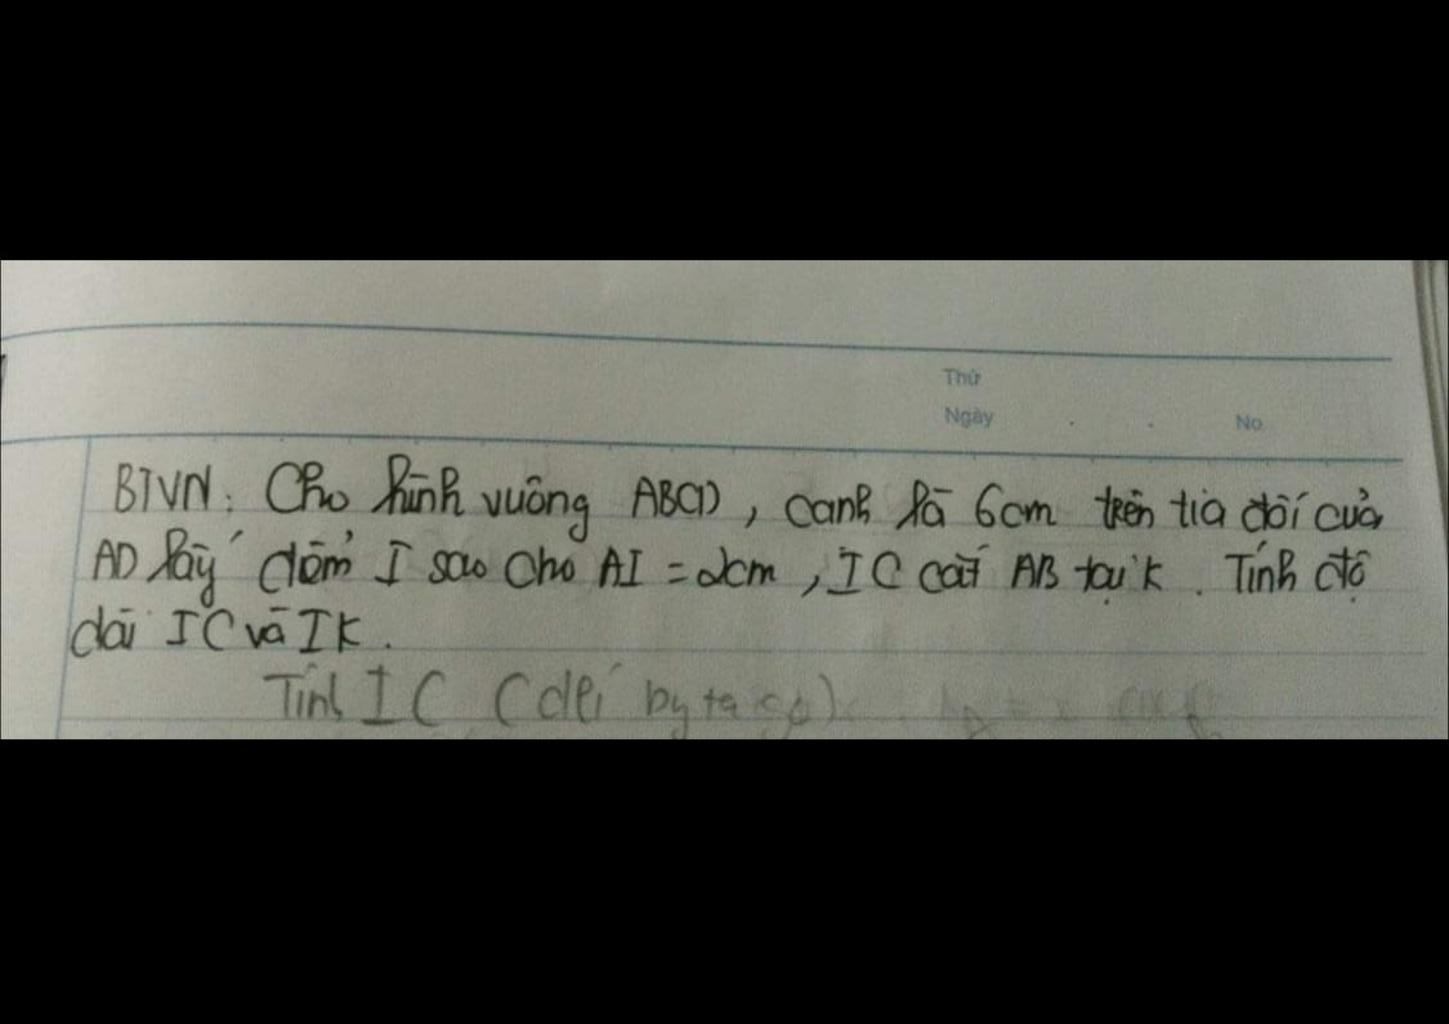 Thứ
Ngày . . No
BTVN: Cho hình vuông ABCD, cạnh là 6cm trên tia đối của
AD lấy điểm I sao cho AI = 2cm, IC cắt AB tại K. Tính độ
dài IC và IK.
Tính IC (